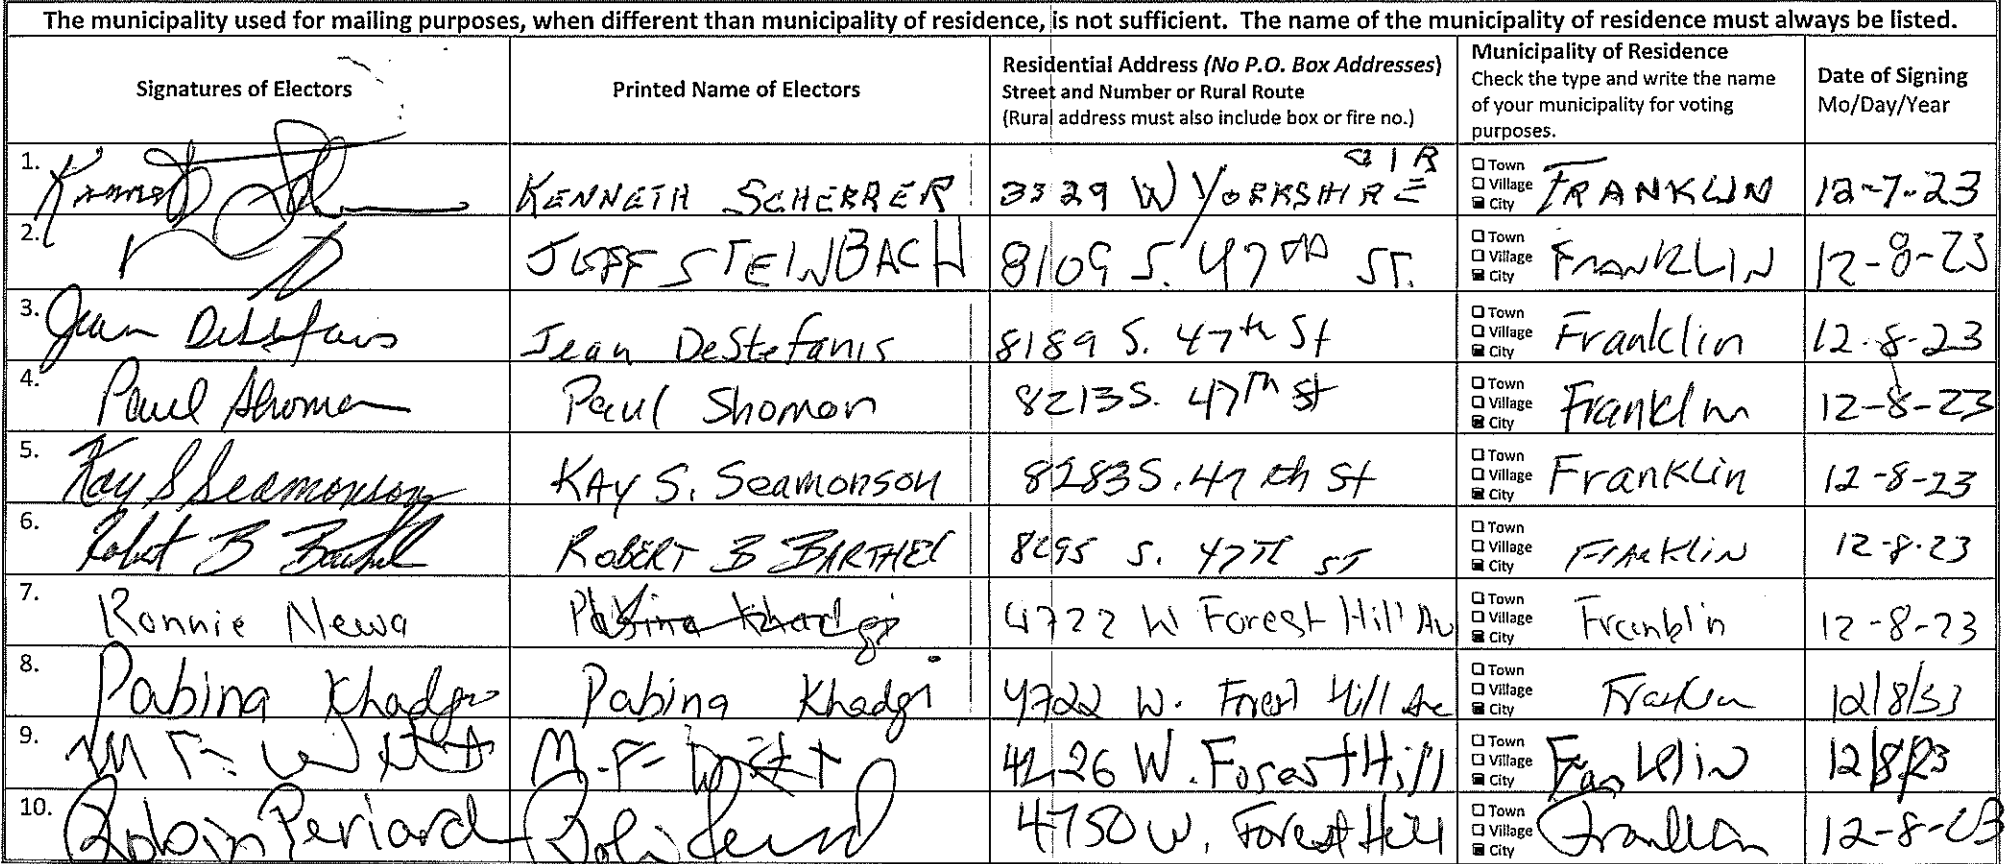 The municipality used for mailing purposes, when different than municipality of residence, is not sufficient. The name of the municipality of residence must always be listed.
Signatures of Electors
Printed Name of Electors
Residential Address (No P.O. Box Addresses)
Street and Number or Rural Route
(Rural address must also include box or fire no.)
Municipality of Residence
Check the type and write the name
of your municipality for voting
purposes.
Date of Signing
Mo/Day/Year
1. KENNETH SCHERRER 3329 W YORKSHIRE CIR Town Village City FRANKLIN 12-7-23
2. JEFF STEINBACH 8109 S. 47TH ST. Town Village City FRANKLIN 12-8-23
3. Jean DeStefanis Jean DeStefanis 8189 S. 47th St Town Village City Franklin 12-8-23
4. Paul Shoman Paul Shomon 8213 S. 47th St Town Village City Franklin 12-8-23
5. Kay S Seamonson KAY S. Seamonson 8283 S. 47th St Town Village City Franklin 12-8-23
6. Robert B Barthel ROBERT B BARTHEL S. 47TH ST Town Village City Franklin 12-8-23
7. Ronnie Newa Pabina Khadgi 4722 W Forest Hill Av Town Village City Franklin 12-8-23
8. Pabina Khadgi Pabina Khadgi 4722 W. Forest Hill Ave Town Village City Franklin
9. M F Witt M.F. Witt W. Forest Hill Town Village City Franklin 12/8/23
10. Robin Periard 4750 W. Forest Hill Town Village City Franklin 12-8-23